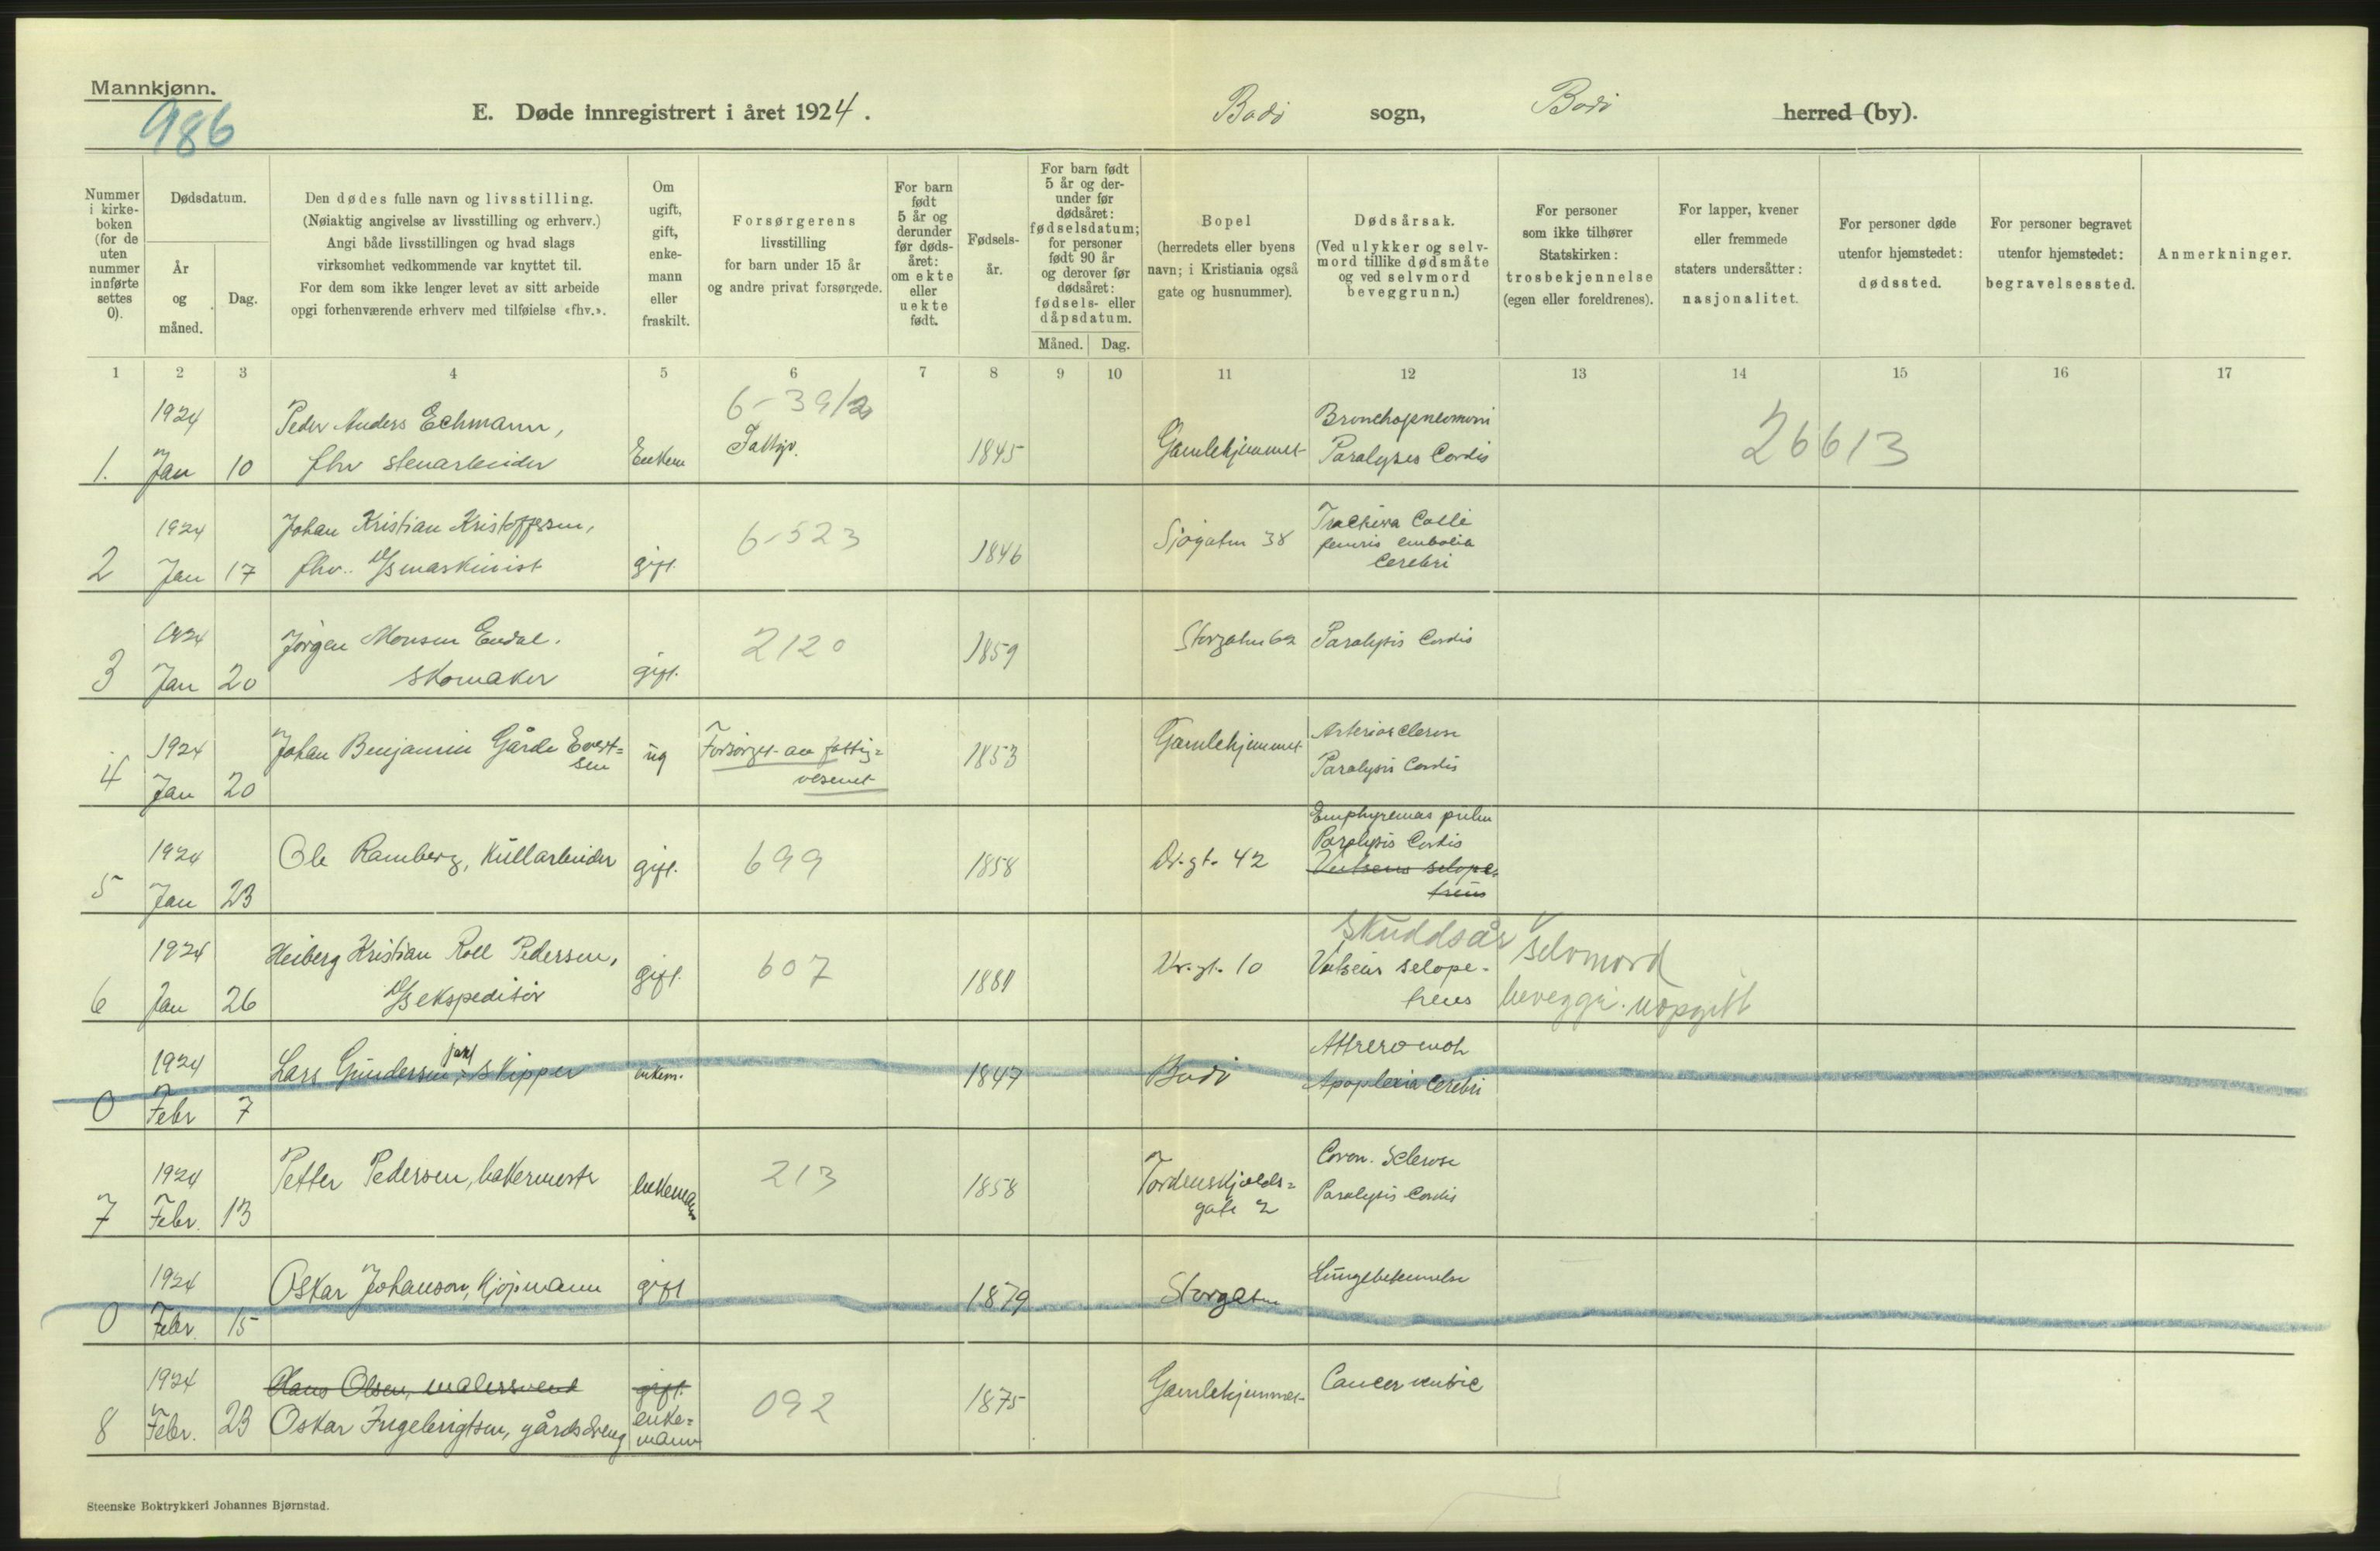 Mannkjønn.
986
E. Døde innregistrert i året 1924.
Bodø sogn, Bodø herred (by).
Nummer i kirke-boken (for de uten nummer innførte settes 0).
Dødsdatum.
År og måned.
Dag.
Den dødes fulle navn og livsstilling.
(Nøiaktig angivelse av livsstilling og erhverv.)
Angi både livsstillingen og hvad slags
virksomhet vedkommende var knyttet til.
For dem som ikke lenger levet av sitt arbeide
opgi forhenværende erhverv med tilføielse «fhv.».
Om ugift, gift, enke-mann eller fraskilt.
Forsørgerens
livsstilling
for barn under 15 år
og andre privat forsørgede.
For barn født 5 år og derunder før døds-året: om ekte eller uekte født.
Fødsels-år.
For barn født 5 år og der-under før dødsåret: fødselsdatum; for personer født 90 år og derover før dødsåret: fødsels- eller dåpsdatum.
Måned. Dag.
Bopel
(herredets eller byens
navn; i Kristiania også
gate og husnummer).
Dødsårsak.
(Ved ulykker og selv-
mord tillike dødsmåte
og ved selvmord
beveggrunn.)
For personer
som ikke tilhører
Statskirken:
trosbekjennelse
(egen eller foreldrenes).
For lapper, kvener
eller fremmede
staters undersåtter:
nasjonalitet.
For personer døde
utenfor hjemstedet:
dødssted.
For personer begravet
utenfor hjemstedet:
begravelsessted.
Anmerkninger.
1 2 3 4 5 6 7 8 9 10 11 12 13 14 15 16 17
1924 Peder Anders Echmann, 6-39/2 Bronchopneumoni
1. Jan 10 fhv stenarbeider Enkem Fattigv. 1845 Gamlehjemmet Paralyses Cordis 26613
1924 Johan Kristian Kristoffersen,
2 Jan 17 fhv. D/S maskinist gift. 6-523 1846 Sjøgaten 38 Fractura Colli
femoris embolia
Cerebri
1924 Jørgen Monsen Endal.
3 Jan 20 skomaker gift. 2120 1859 Storgaten 62 Paralysis Cordis
4 1924 Johan Benjamin Gårde Evert=
sen ug Forsørget av fattig=
vesenet 1853 Gamlehjemmet Arteriosclerose
Jan 20 Paralysis Cordis
1924 Ole Ramberg, Kullarbeider gift. 699 1858 Dr.gt. 42 Emphysemas pulm
Paralysis Cordis
5 Jan 23
1924 Heiberg Kristian Roll Pedersen, gift. 607 Dr.gt. 10 Skuddsår selvmord
6 Jan 26 D/S ekspeditør 1881 Vulseus selope-
treus beveggr. uopgitt
1924 Lars Gundersen, skipper enkem. 1847 Bodø
0 Febr 7 Apoplexia Cerebri
1924 Petter Pedersen, bakermester enkemann 213 1858 Tordenskjolds=
gate 2 Coron. Sclerose
7 Febr. 13 Paralysis Cordis
1924 Oskar Johanson, Kjøpmann gift 1879 Storgaten Lungebetennelse
0 Febr. 15
1924 Hans Olsen, malersvend gift. 092 1875 Gamlehjemmet Cancer
8 Febr. 23 Oskar Ingebrigtsen, gårdsdreng enke=
mann
Steenske Boktrykkeri Johannes Bjørnstad.